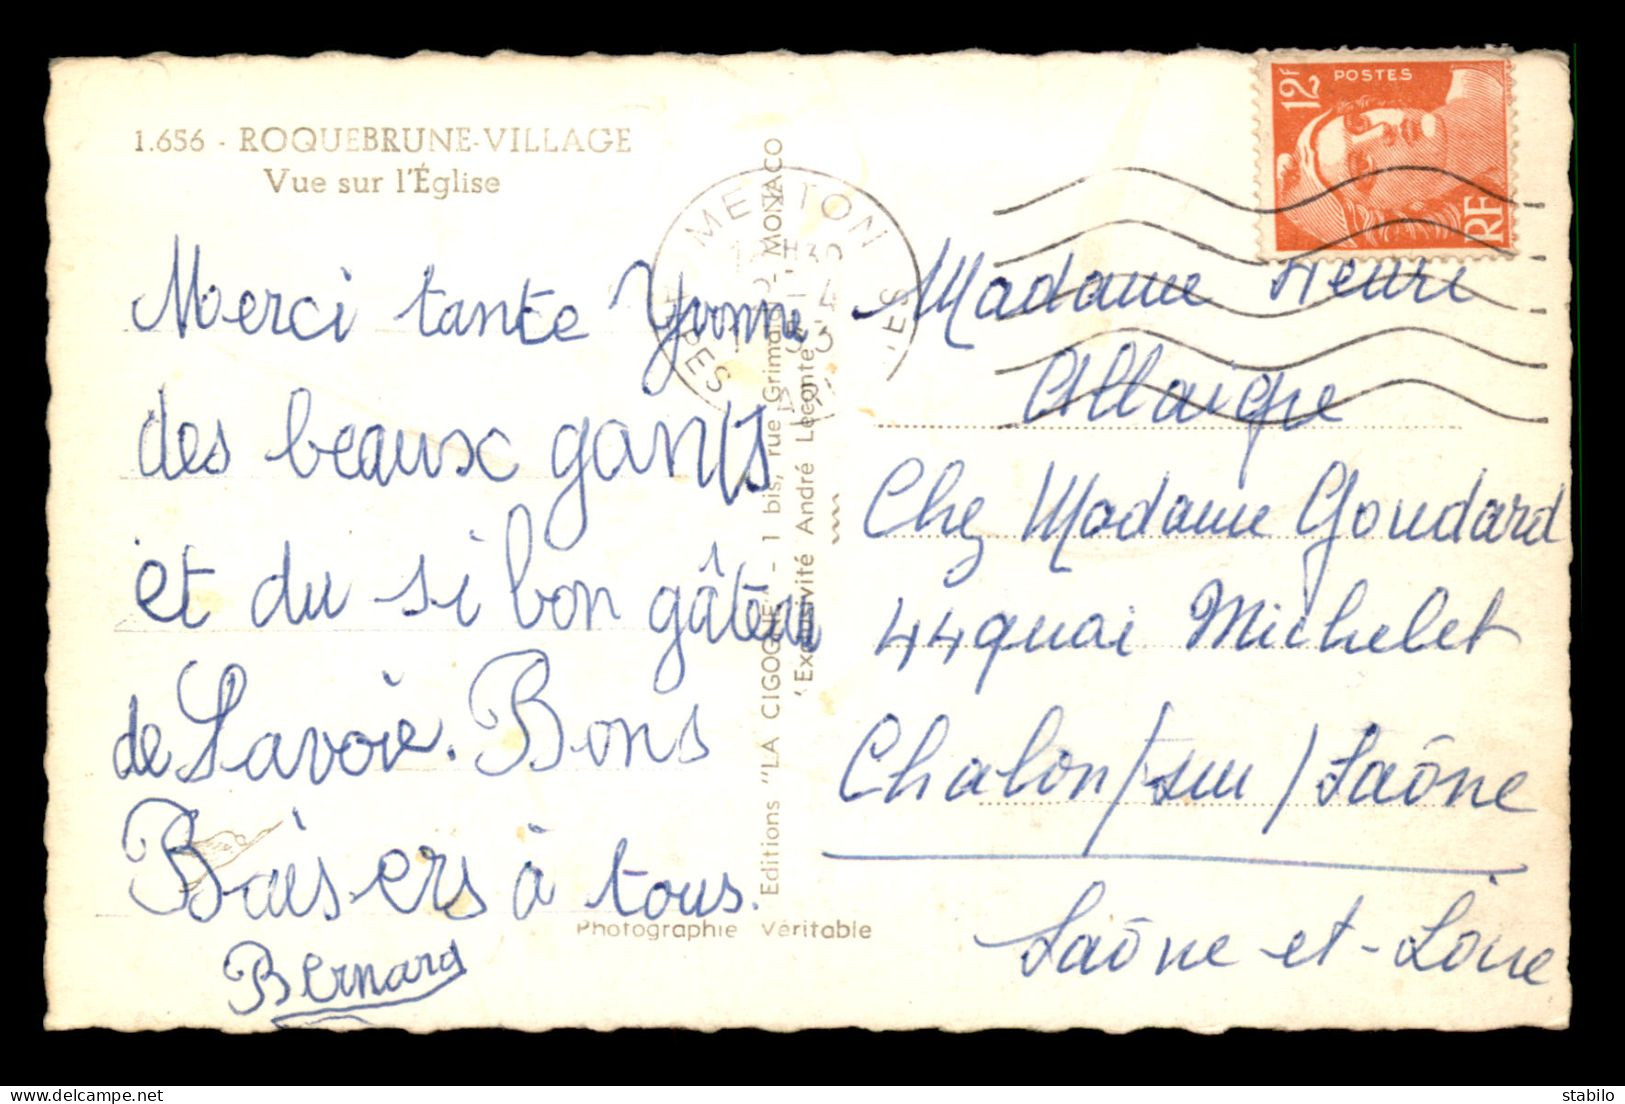 1.656 - ROQUEBRUNE-VILLAGE
Vue sur l'Église
Merci tante Yvonne
des beaux gants
et du si bon gâteau
de Savoie. Bons
Baisers à tous.
Bernard
Editions "LA CIGOGNE" - 1 bis, rue Grimaldi - MONACO
"Exclusivité André Leconte"
Photographie Véritable
MENTON
12F POSTES
RF
Madame Henri
Allaigre
Chez Madame Goudard
44 quai Michelet
Chalon/sur/Saône
Saône-et-Loire
stabilo